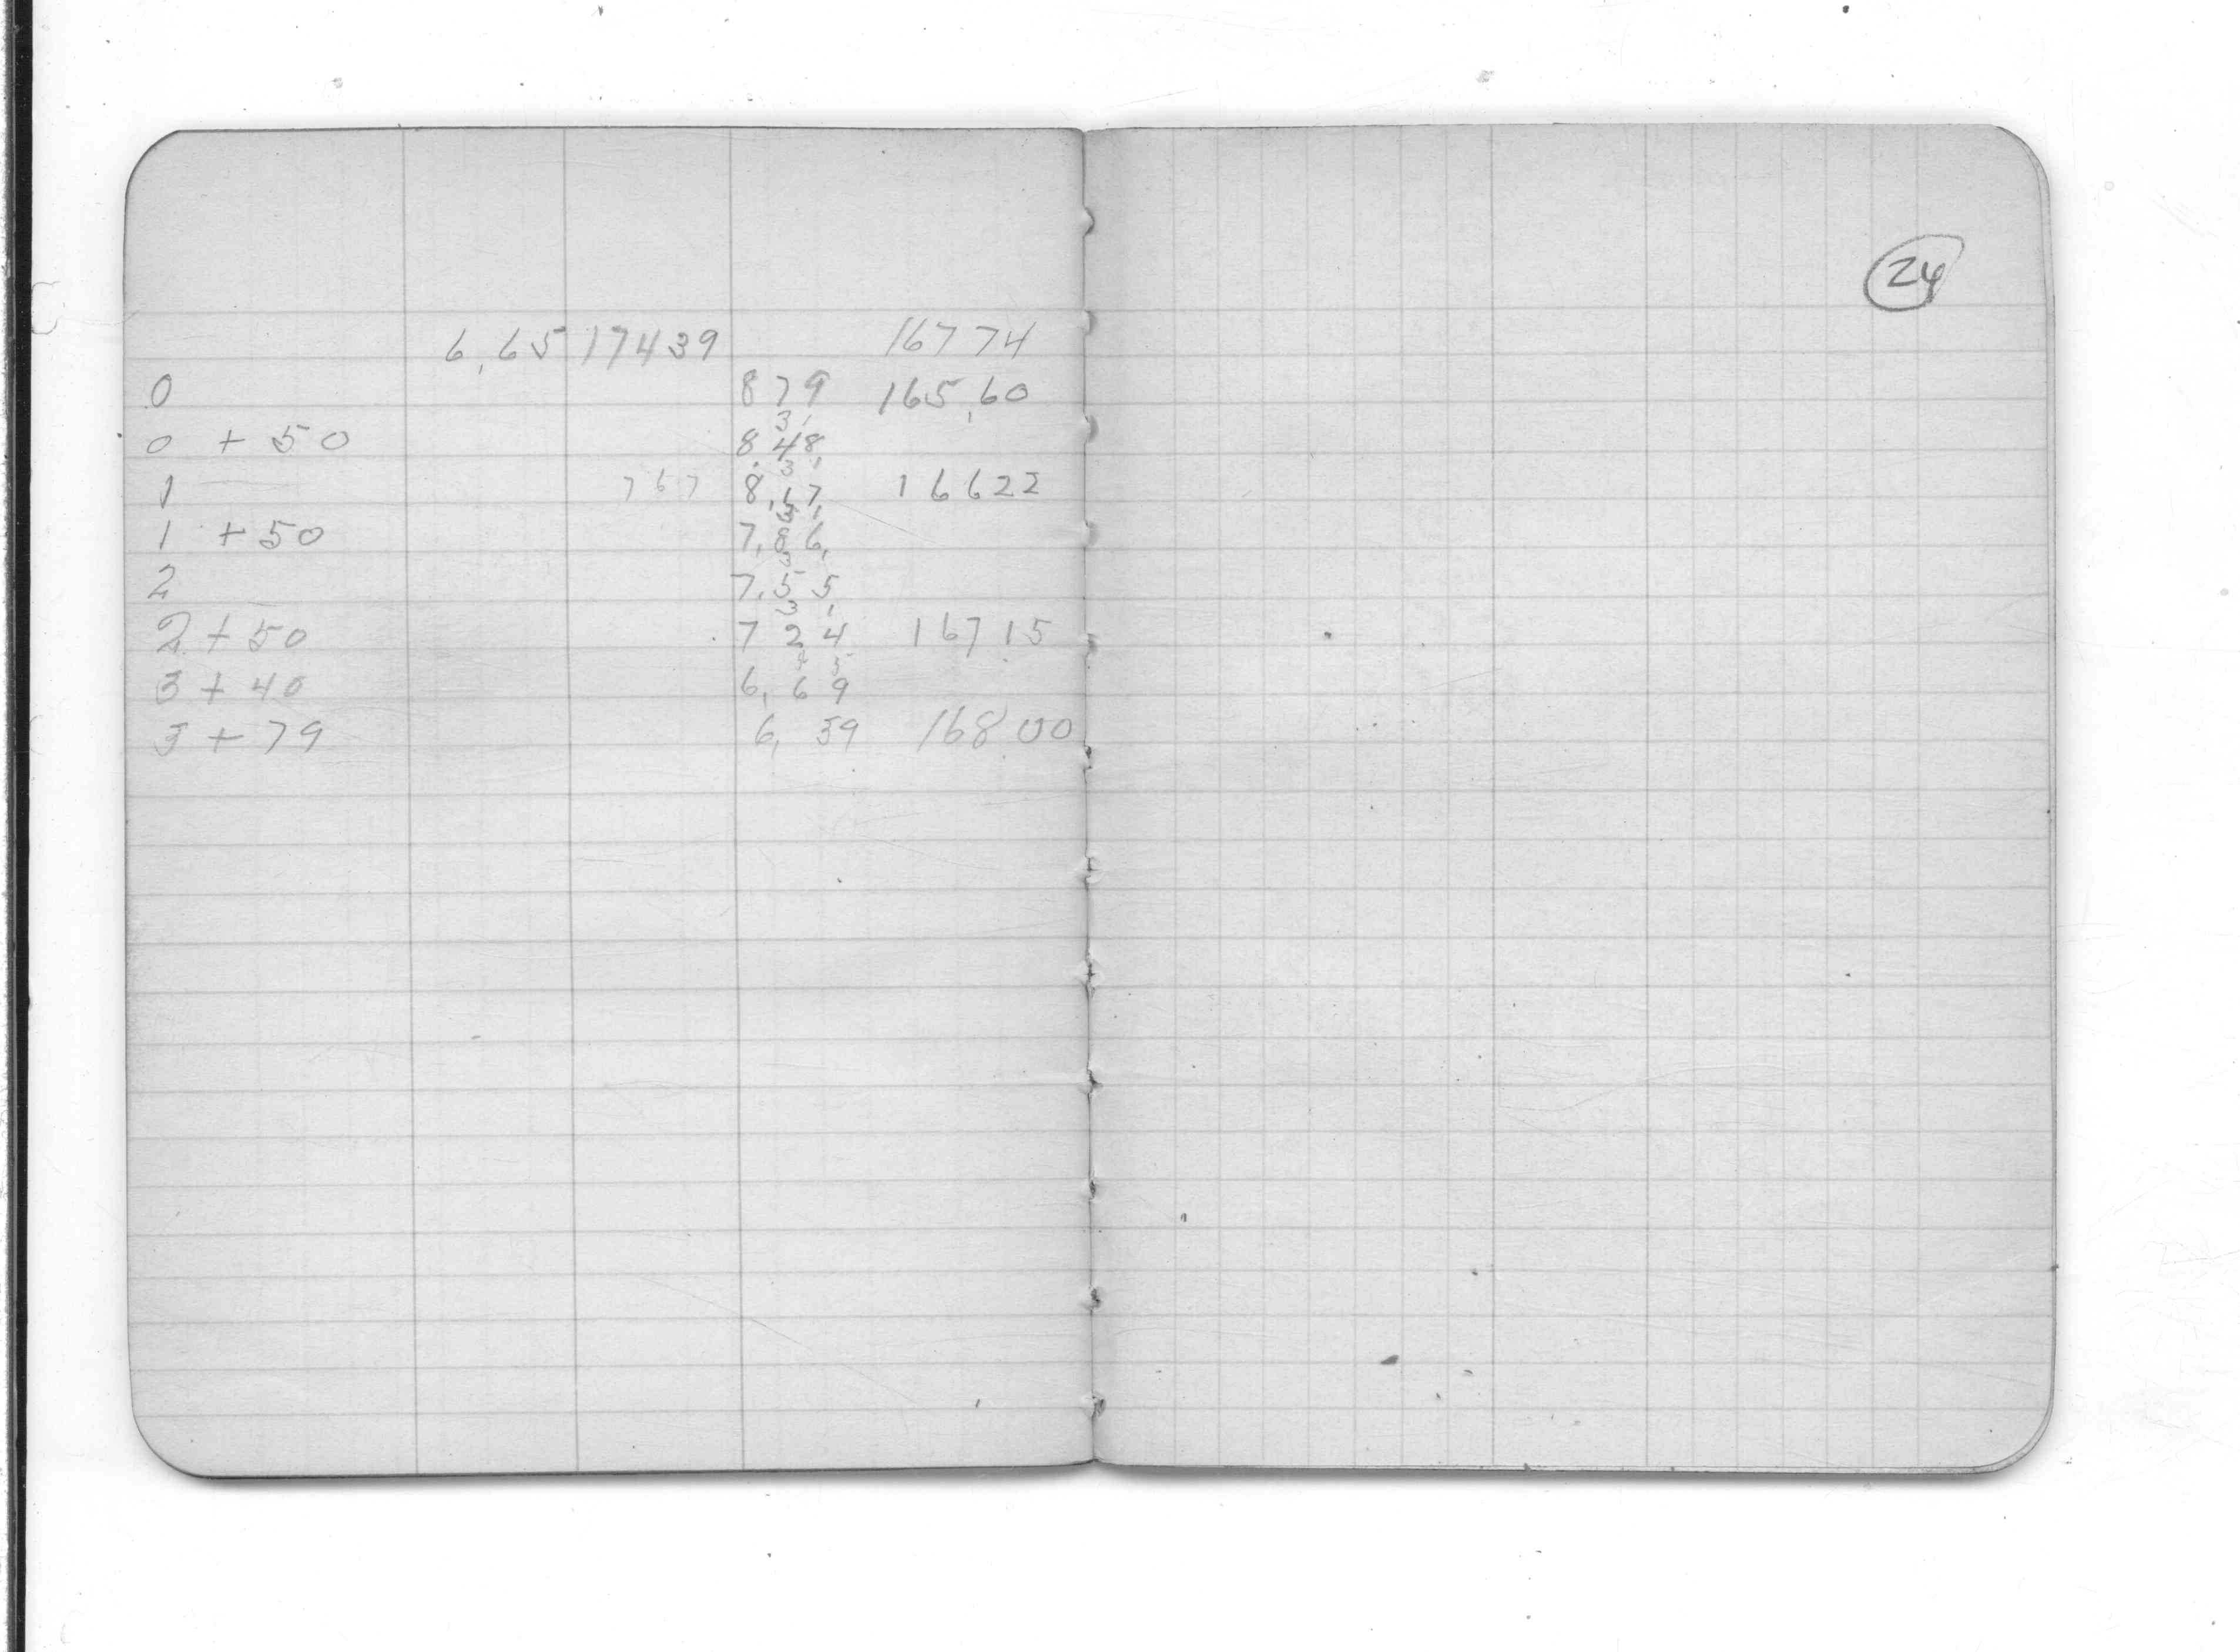 6.65 174 39 167 74
0 8 79 165.60
3 1
0 + 50 8.48
3 1
1 7 67 8.17 166 22
1
1 + 50 7.86
3
2 7.55
3 1
2 + 50 7 24 167 15
5
3 + 40 6.69
3 + 79 6. 39 168 00
24